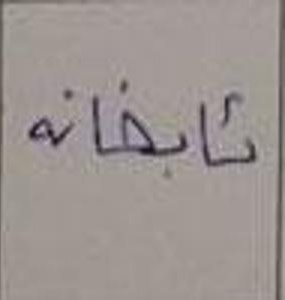 تابخانه